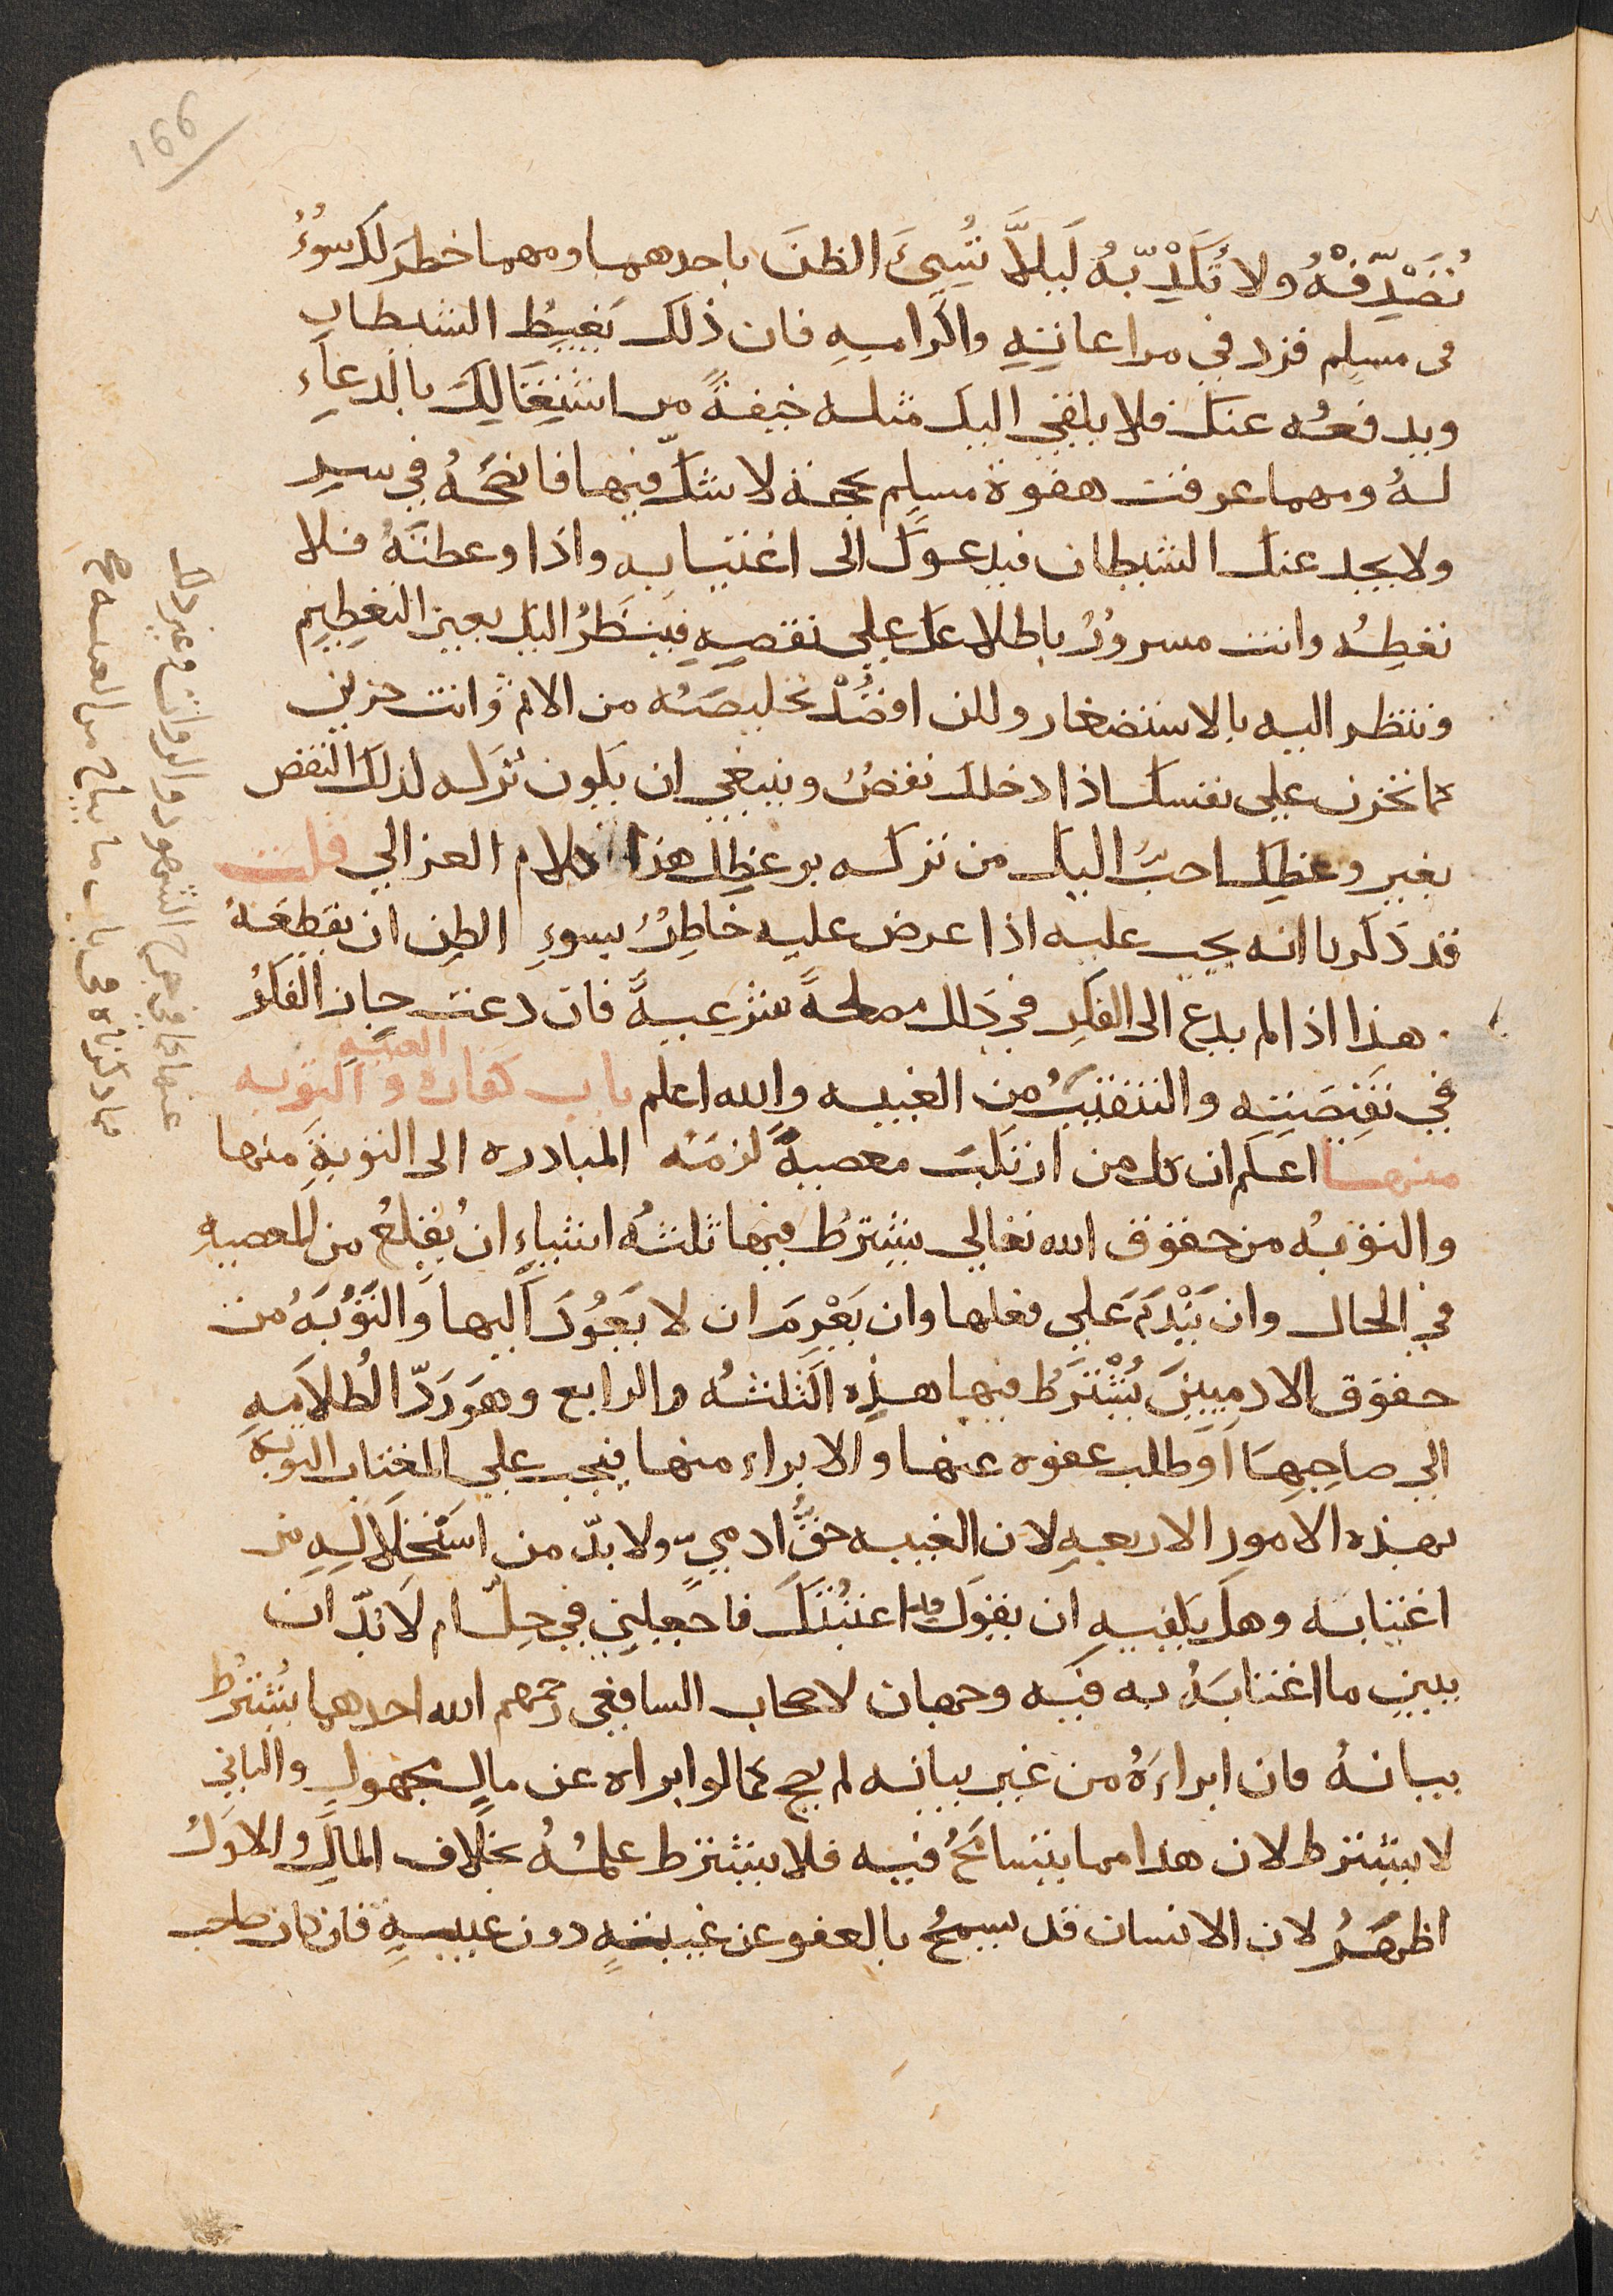 199
تُصَدِّقْهُ ولا تُكَذِّبْهُ لَيلاَّ تُسِيَ الظنَ باحدهما ومهما خطرَ لك سُوءُ
في مسلم فزد في مراعاتِهِ واكرامِهِ فان ذلك يَغيظُ الشيطان
ويدفعُه عنك فلا يلقي اليك مثله خيفةً من اشتِغَالِكَ بالدعاءِ
لهُ ومهما عرفت هفوة مسلم بحجة لا شكّ فيها فانصَحْهُ في سرِ
ولا يخدعنك الشيطان فيدعوَك الى اغتيابه واذا وعظتَهُ فلا
تعظِهُ وانت مسرورٌ باطلاعك علي نقصِهِ فينظرُ اليك بعين التعظيم
وتنظر اليه بالاستصغار ولكن اقصُدْ تخليصَهُ من الاثم وانت حزين
كما تحزن علي نفسك اذا دخلك نقصٌ وينبغي ان يكون تركه لذلك النقص
بغير وعظِك احبَّ اليك من تركه بوعظِك هذا كلام الغزالي قلت
قد ذكرنا انه يجب عليه اذا عرض عليه خاطِرٌ بسوءِ الظن ان يقطعَهُ
هذا اذا لم يدع الى الفكرِ في ذلك مصلحةً شرعيةً فان دعت جاز الفكرُ
في نَقِيصَتِه والتنقيبُ من الغيبه والله اعلم باب كفاره الغيبه والتوبه
منها اعلم ان كل من ارتكبَ معصيةً لزمَهُ المبادره الى التوبةِ منها
والتوبهُ من حقوق الله تعالي يشترطُ فيها ثلثهُ اشياءٍ ان يُقلِعَ من المعصيهِ
في الحال وان يَنْدَمَ علي فعلها وان يَعْزِمَ ان لا يَعُودَ اليها والتَوْبَهُ من
حقوق الادميينَ يُشْتَرَطُ فيها هذِهِ الثلثهُ والرابع وهو رَدّ الظُلامَهِ
الى صاحِبِهَا او طلب عفوه عنها والابراء منها فيجب علي المغتاب التوبة
بهذه الامور الاربعهِ لان الغيبه حقُّ ادميٍّ ولا بدّ من استحلالِهِ من
اغتابه وهل يكفيهِ ان يقولَ قد اغتبْتُكَ فاجعلني في حِلٍّ ام لا بُدّ ان
يبين ما اغتابَهُ به فيه وجهان لاصحاب الشافعي رحمهم الله احدهما يُشترطُ
بيانهُ فان ابراءَهُ من غير بيانه لم يصح كما لو ابراه عن مالٍ مجهولٍ والثاني
لا يشترط لان هذا مما يتسامَحُ فيه فلا يشترط علمُهُ بخلاف المالِ والاولُ
اظهَرُ لان الانسان قد يسمحُ بالعفو عن غيبةٍ دون غيبةٍ فان كان صاحب